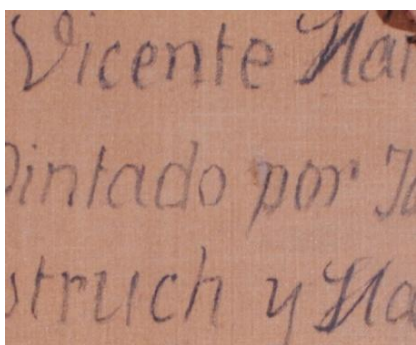 Vicente Mar
Pintado por Jo
struch y Ma